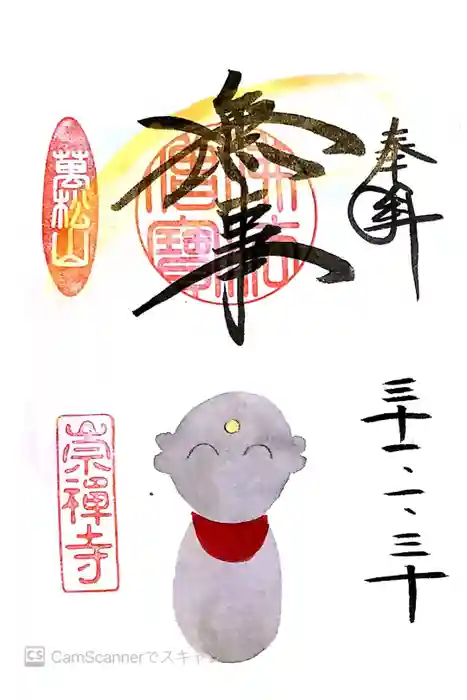 奉拝
三十一、一、三十
無事
佛法
僧寳
萬松山
崇禅寺
CS CamScannerでスキャ